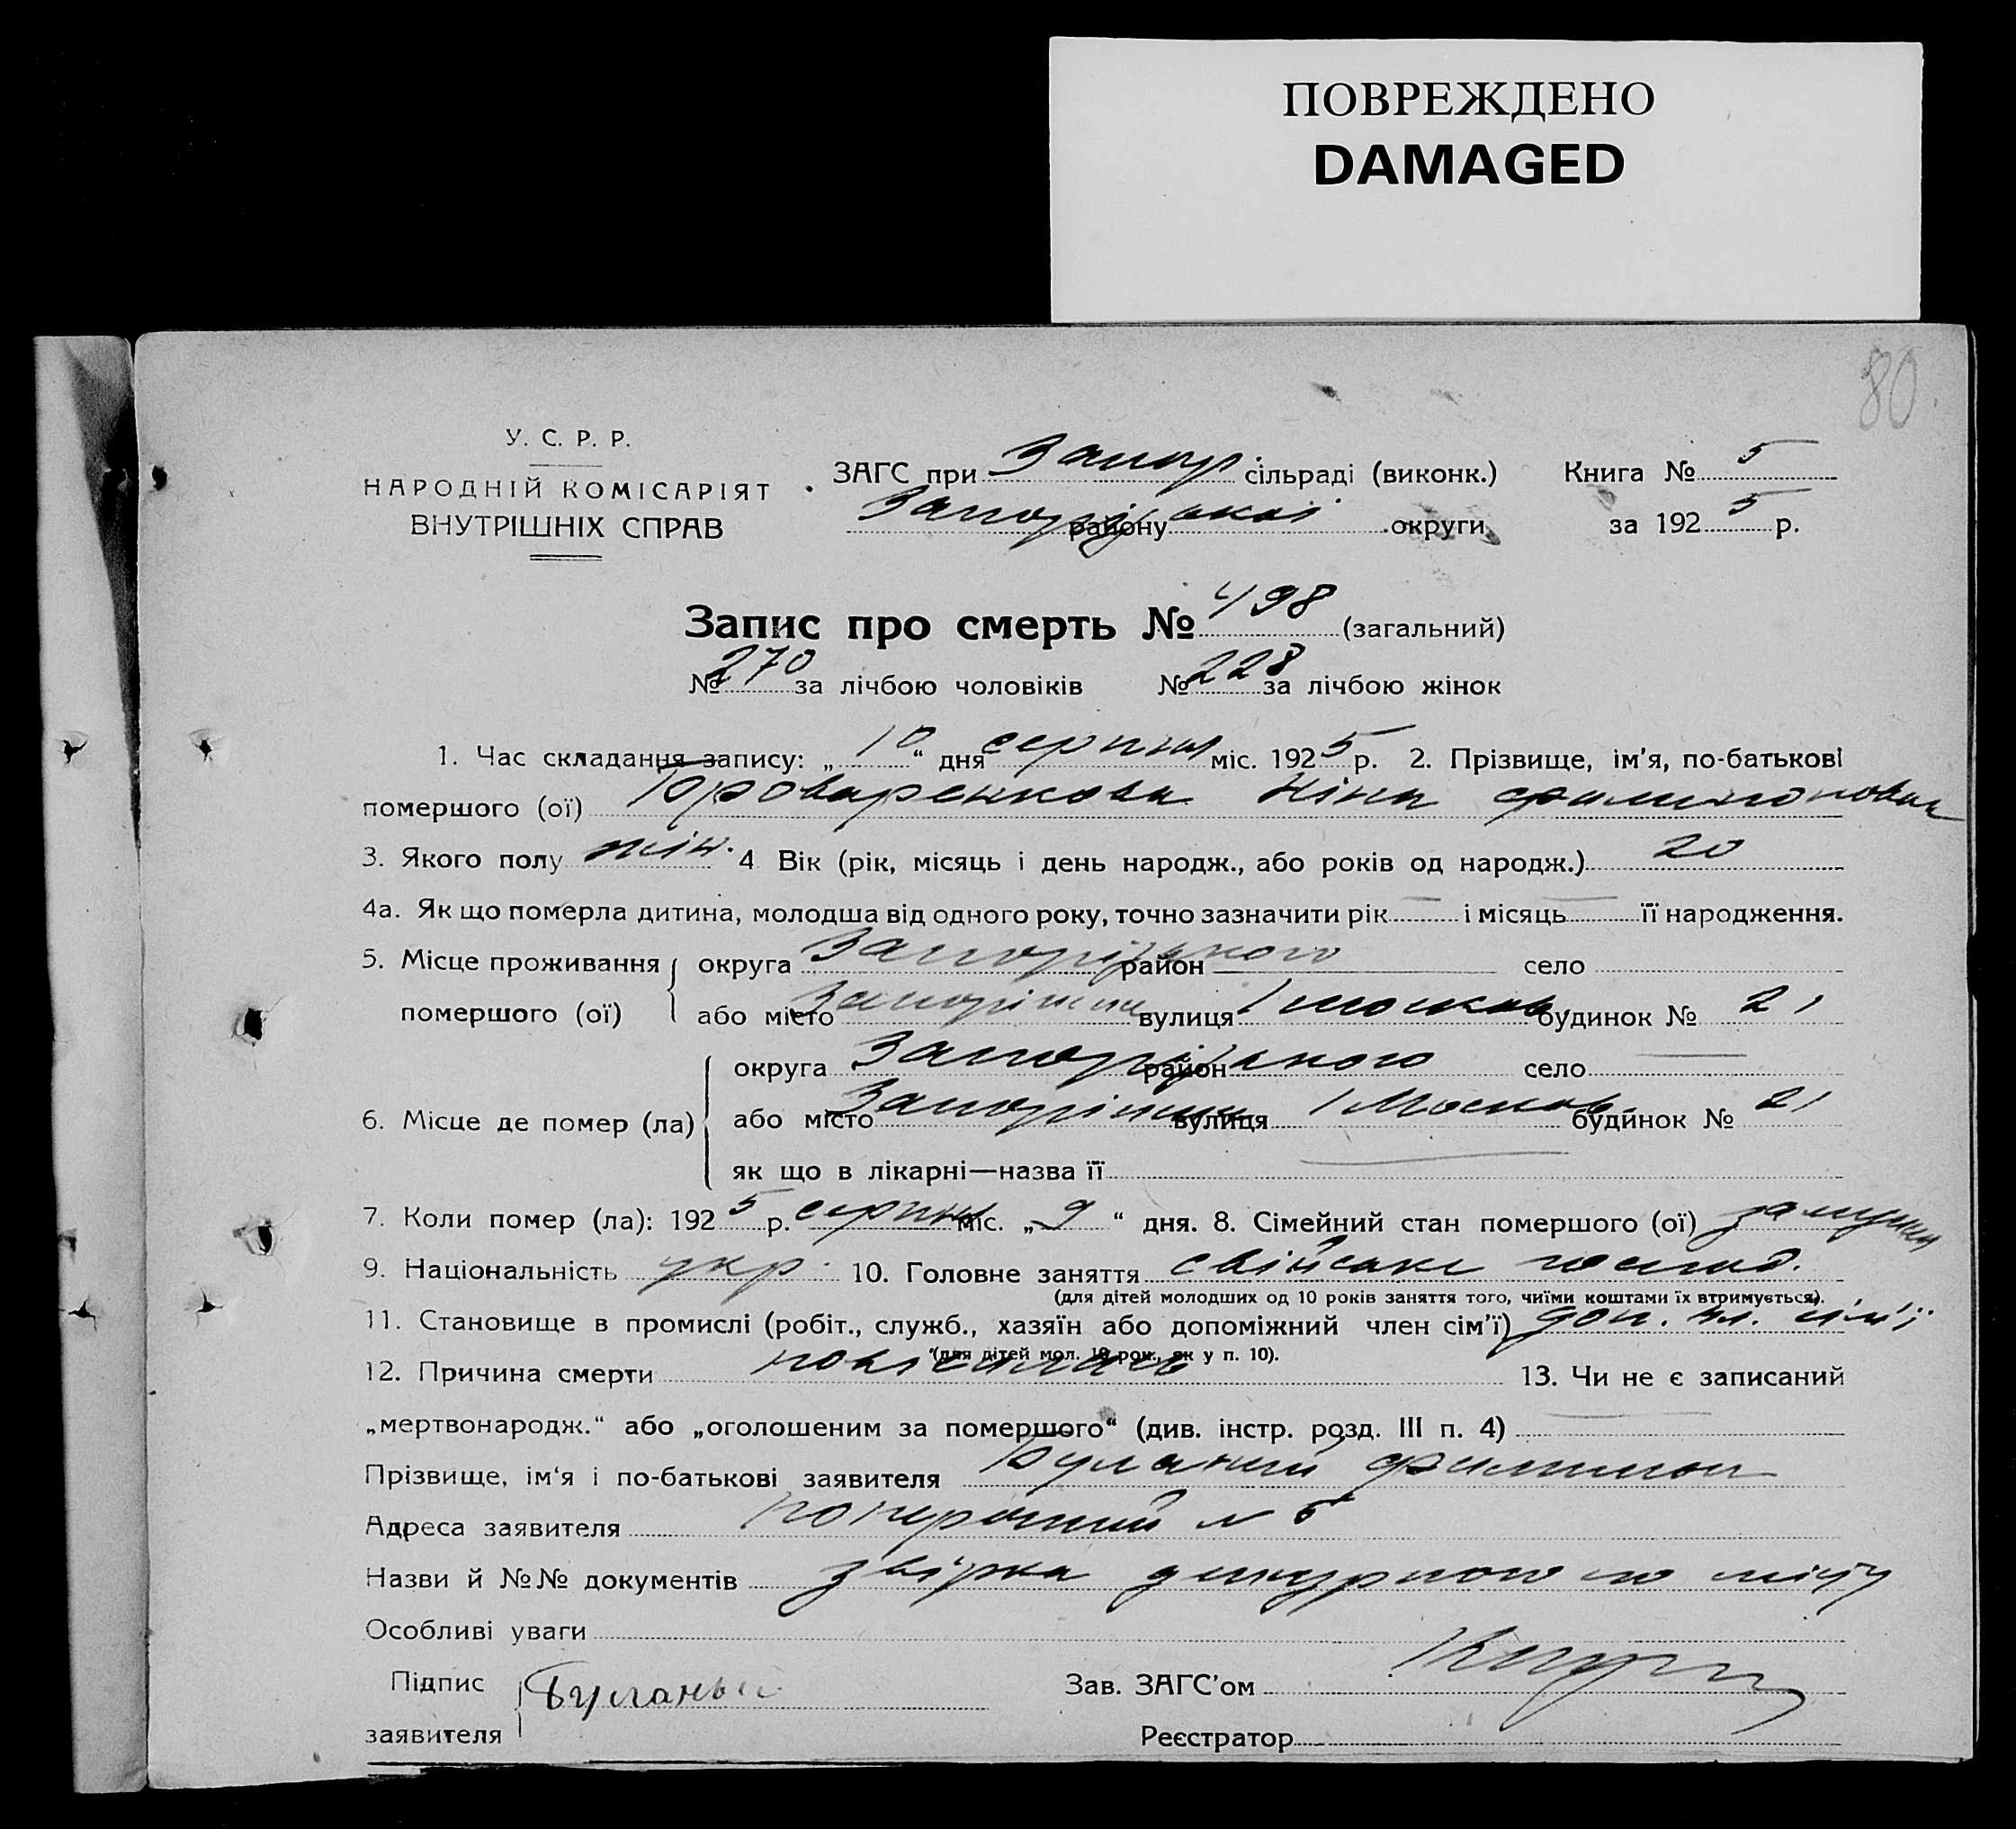 ПОВРЕЖДЕНО
DAMAGED
80
У. С. Р. Р.
НАРОДНІЙ КОМІСАРІЯТ
ВНУТРІШНІХ СПРАВ
ЗАГС при Запор. сільраді (виконк.) Книга № 5
Запорізької району округи за 1925 р.
Запис про смерть № 498 (загальний)
№ 270 за лічбою чоловіків № 228 за лічбою жінок
1. Час складання запису: „10“ дня серпня міс. 1925 р. 2. Прізвище, ім'я, по-батькові
помершого (ої) Броваренкова Ніна Филимоновна
3. Якого полу жін. 4 Вік (рік, місяць і день народж., або років од народж.) 20
4а. Як що померла дитина, молодша від одного року, точно зазначити рік — і місяць — її народження.
5. Місце проживання помершого (ої) округа Запорізького район село
або місто Запоріжжя вулиця 1 Москов. будинок № 21
6. Місце де помер (ла) округа Запорізького район село —
або місто Запоріжжя вулиця 1 Москов. будинок № 21
як що в лікарні—назва її —
7. Коли помер (ла): 1925 р. серпня міс. „9“ дня. 8. Сімейний стан помершого (ої) замужня
9. Національність укр. 10. Головне заняття свійське господ.
(для дітей молодших од 10 років заняття того, чиїми коштами їх втримується).
11. Становище в промислі (робіт., служб., хазяїн або допоміжний член сім'ї) доп. чл. сім'ї
(для дітей мол. 10 рок., як у п. 10).
12. Причина смерти повісилась 13. Чи не є записаний
„мертвонародж.“ або „оголошеним за помершого“ (див. інстр. розд. III п. 4) —
Прізвище, ім'я і по-батькові заявителя Буланий Филимон
Адреса заявителя поперечний № 5
Назви й №№ документів дежурного по місту
Особливі уваги
Підпис заявителя Буланый
Зав. ЗАГС'ом
Реєстратор